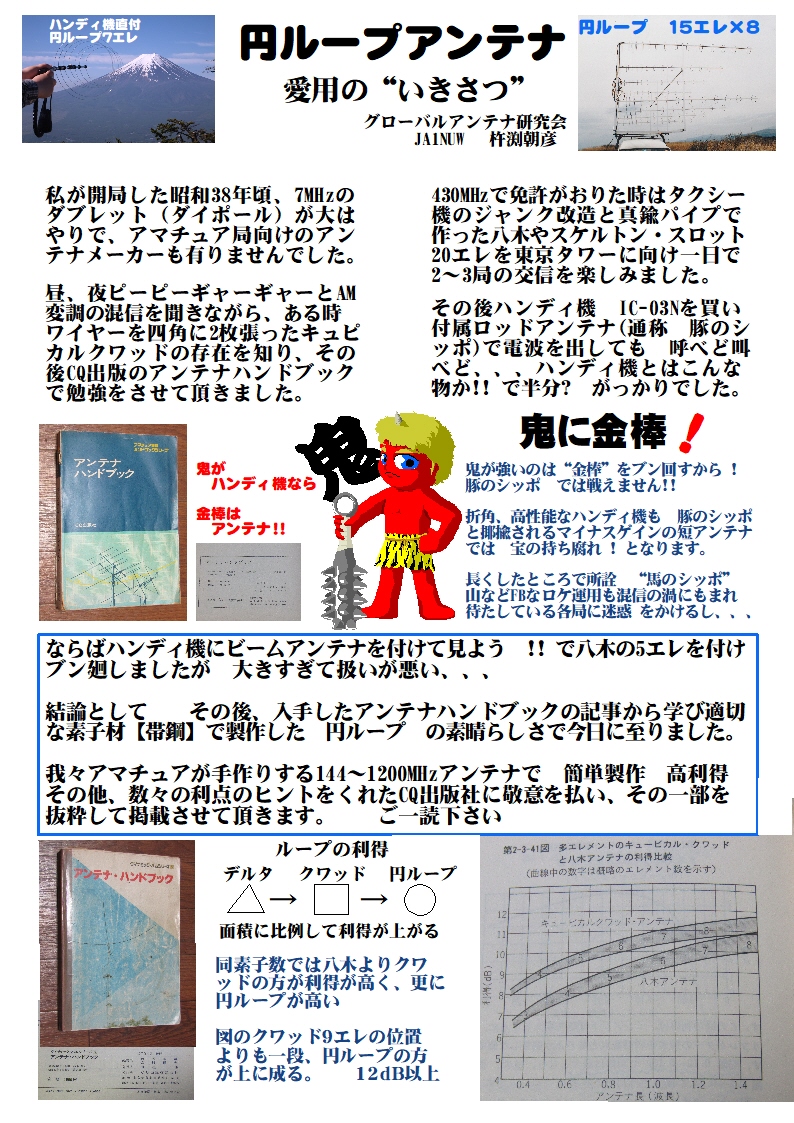 ハンディ機直付
円ループ7エレ
円ループアンテナ
愛用の“いきさつ”
グローバルアンテナ研究会
JA1NUW　杵渕朝彦
円ループ　15エレ×8
私が開局した昭和38年頃、7MHzの
ダブレット（ダイポール）が大は
やりで、アマチュア局向けのアン
テナメーカーも有りませんでした。
昼、夜ピーピーギャーギャーとAM
変調の混信を聞きながら、ある時
ワイヤーを四角に2枚張ったキュピ
カルクワッドの存在を知り、その
後CQ出版のアンテナハンドブック
で勉強をさせて頂きました。
430MHzで免許がおりた時はタクシー
機のジャンク改造と真鍮パイプで
作った八木やスケルトン・スロット
20エレを東京タワーに向け一日で
2～3局の交信を楽しみました。
その後ハンディ機　IC-03Nを買い
付属ロッドアンテナ(通称　豚のシ
ッポ)で電波を出しても　呼べど叫
べど、、、ハンディ機とはこんな
物か!! で半分?　がっかりでした。
アンテナ
ハンドブック
CQ出版社
鬼が
ハンディ機なら
金棒は
アンテナ!!
鬼
鬼に金棒！
鬼が強いのは“金棒”をブン回すから！
豚のシッポ　では戦えません!!
折角、高性能なハンディ機も　豚のシッポ
と揶揄されるマイナスゲインの短アンテナ
では　宝の持ち腐れ！となります。
長くしたところで所詮　“馬のシッポ”
山などFBなロケ運用も混信の渦にもまれ
待たしている各局に迷惑 をかけるし、、、
ならばハンディ機にビームアンテナを付けて見よう　!! で八木の5エレを付け
ブン廻しましたが　大きすぎて扱いが悪い、、、
結論として　　その後、入手したアンテナハンドブックの記事から学び適切
な素子材【帯鋼】で製作した　円ループ　の素晴らしさで今日に至りました。
我々アマチュアが手作りする144～1200MHzアンテナで　簡単製作　高利得
その他、数々の利点のヒントをくれたCQ出版社に敬意を払い、その一部を
抜粋して掲載させて頂きます。　　ご一読下さい
アンテナ・ハンドブック
アンテナ・ハンドブック
ループの利得
デルタ　クワッド　円ループ
→ →
面積に比例して利得が上がる
同素子数では八木よりクワ
ッドの方が利得が高く、更に
円ループが高い
図のクワッド9エレの位置
よりも一段、円ループの方
が上に成る。　　12dB以上
第2-3-41図　多エレメントのキュービカル・クワッド
と八木アンテナの利得比較
(曲線中の数字は概略のエレメント数を示す)
キュービカルクワッド・アンテナ
八木アンテナ
利得(dB)
12
11
10
9
8
7
6
5
4
4 5 6 7 8
4 5 6 7 8
0.4 0.6 0.8 1.0 1.2 1.4
アンテナ長(波長)